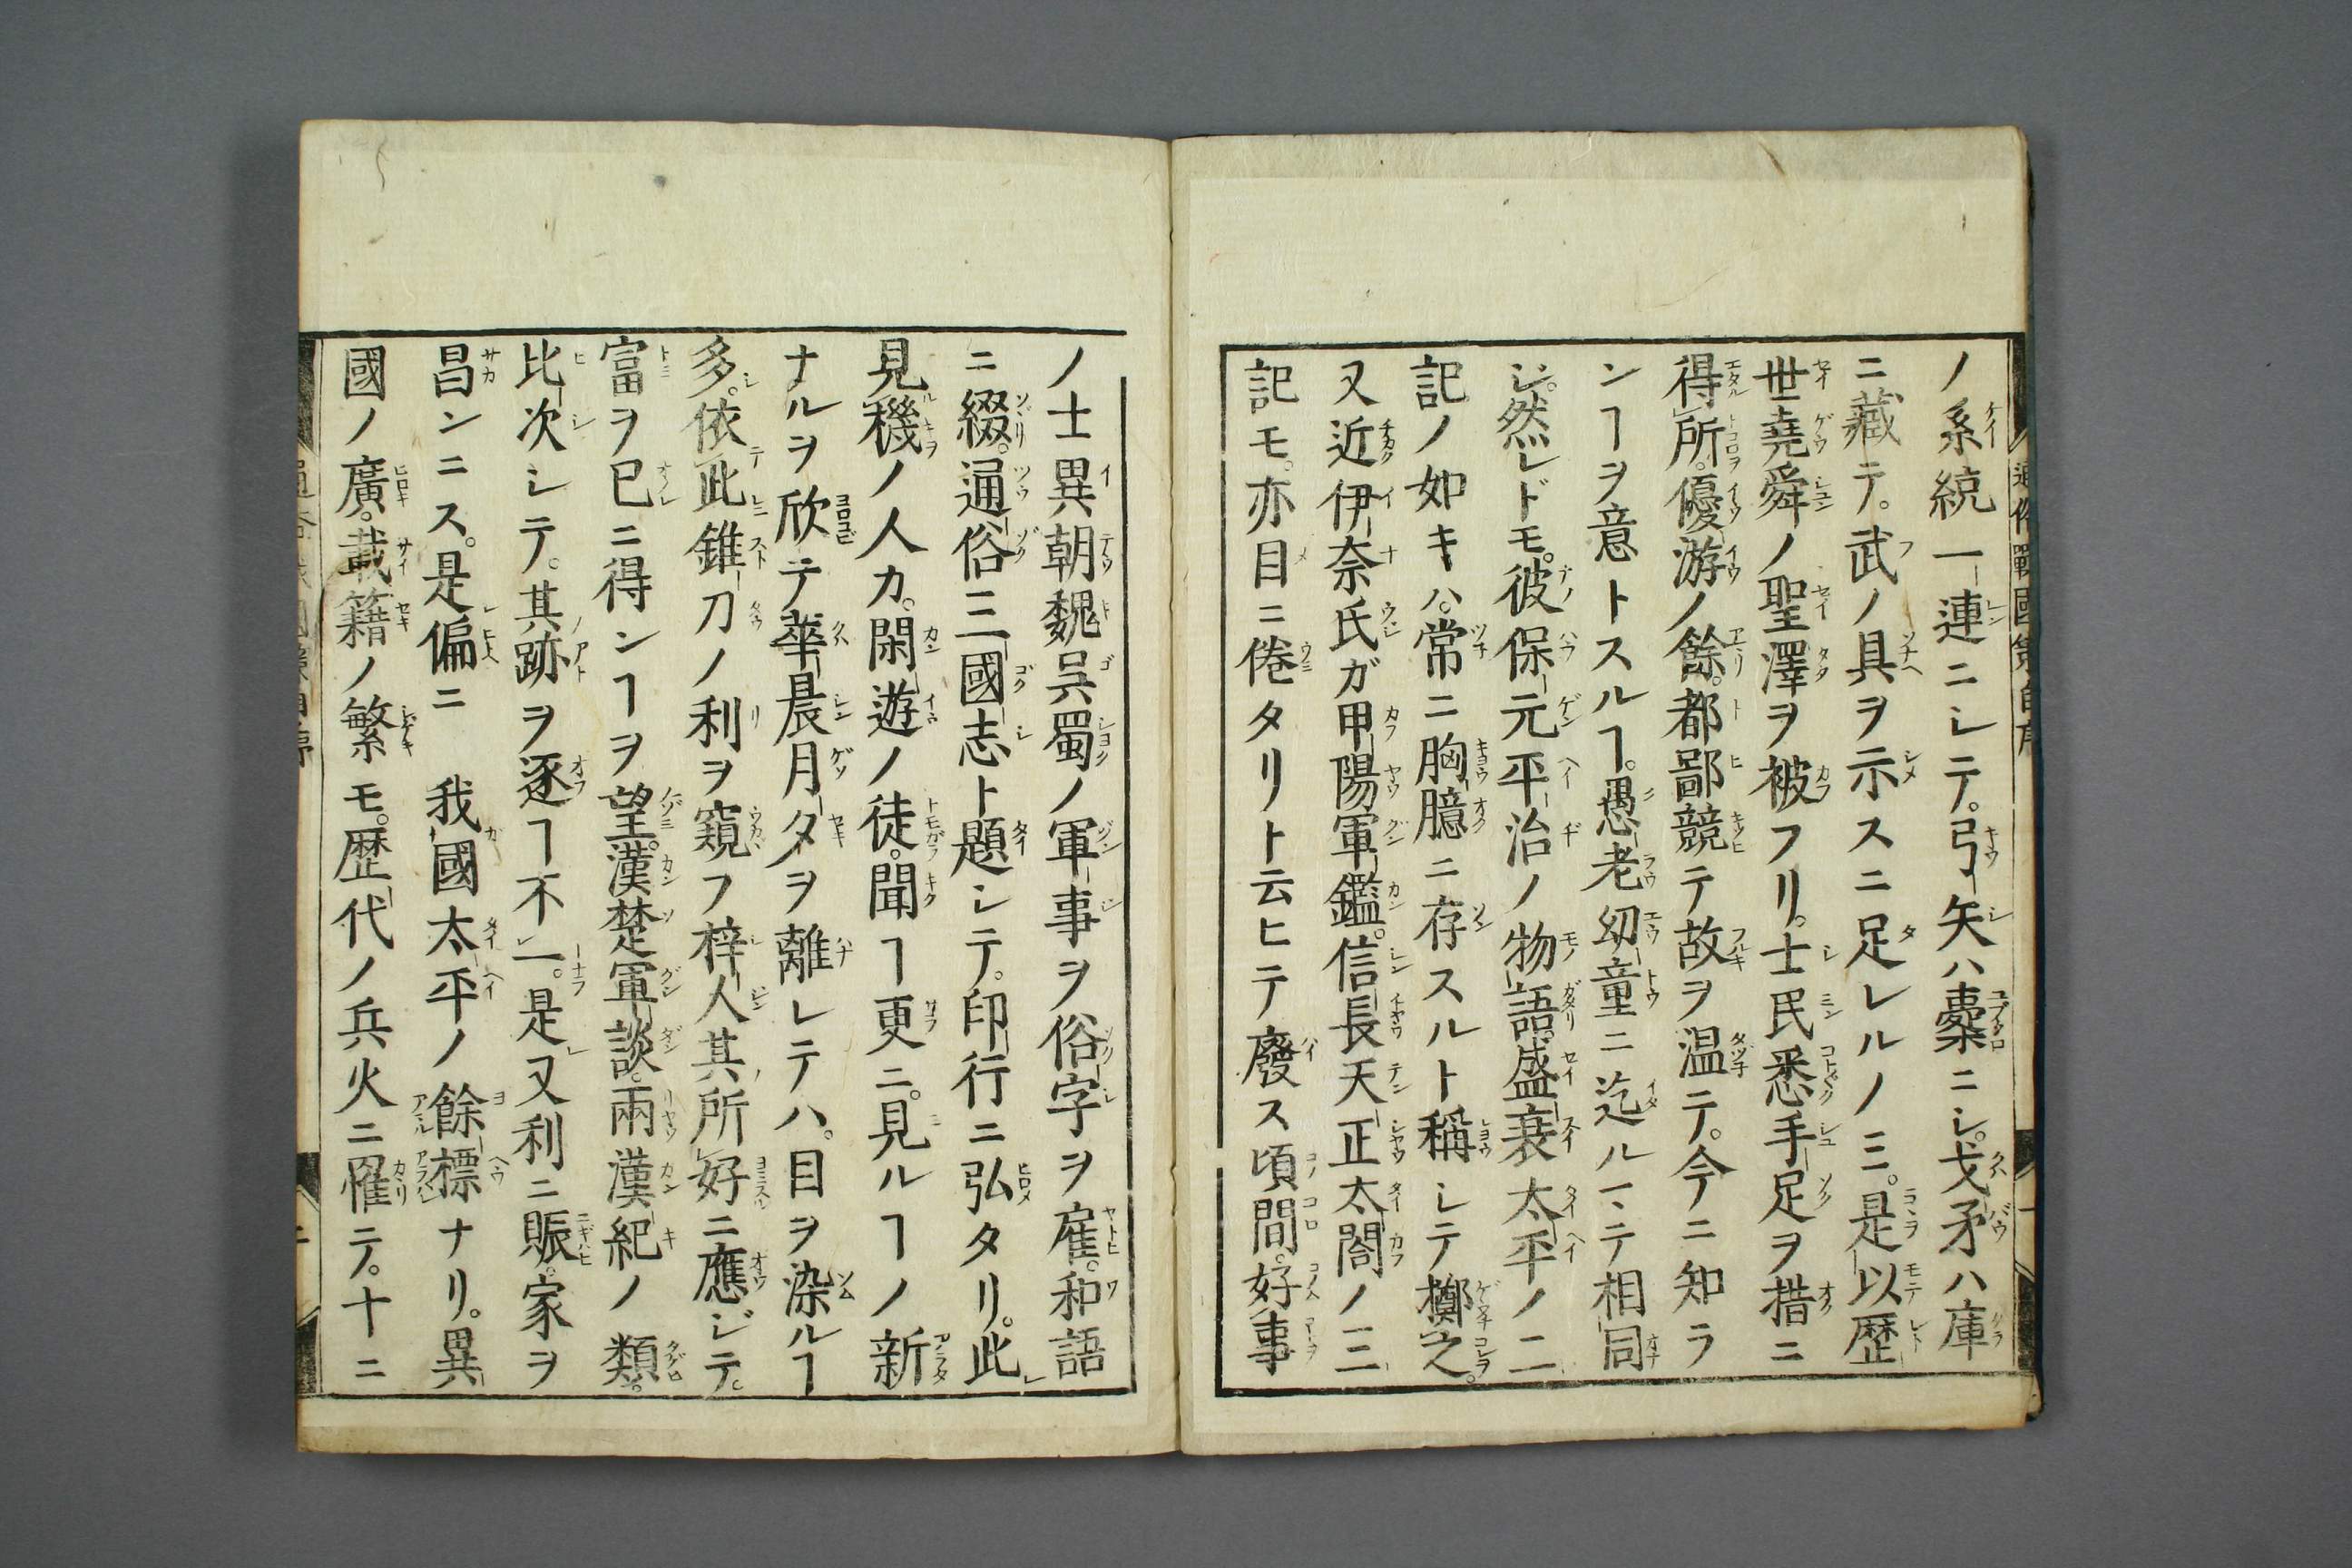 ノ系統一連ニシテ。弓矢ハ櫜ニシ。戈矛ハ庫
ニ藏テ。武ノ具ヲ示スニ足レルノミ。是以歴
世堯舜ノ聖澤ヲ被フリ。士民悉手足ヲ措ニ
得所。優游ノ餘。都鄙競テ故ヲ温テ。今ニ知ラ
ンヿヲ意トスルヿ。愚老幼童ニ迄ルマテ相同
シ。然レドモ。彼保元平治ノ物語。盛衰太平ノ二
記ノ如キハ。常ニ胸臆ニ存スルト稱シテ擲之。
又近伊奈氏ガ甲陽軍鑑。信長天正太閤ノ三
記モ。亦目ニ倦タリト云ヒテ廢ス頃間。好事
ノ士異朝魏呉蜀ノ軍事ヲ俗字ヲ雇。和語
ニ綴。通俗三國志ト題シテ。印行ニ弘タリ。此
見機ノ人カ。閑遊ノ徒。聞ヿ更ニ。見ルヿノ新
ナルヲ欣テ華晨月夕ヲ離レテハ。目ヲ染ルヿ
多。依此錐刀ノ利ヲ窺フ梓人其所好ニ應ジテ。
富ヲ已ニ得ンヿヲ望。漢楚軍談。兩漢紀ノ類。
比次シテ。其跡ヲ逐ヿ不一。是又利ニ賑。家ヲ
昌ンニス。是偏ニ 我國太平ノ餘標ナリ。異
國ノ廣。載籍ノ繁モ。歴代ノ兵火ニ罹テ。十ニ